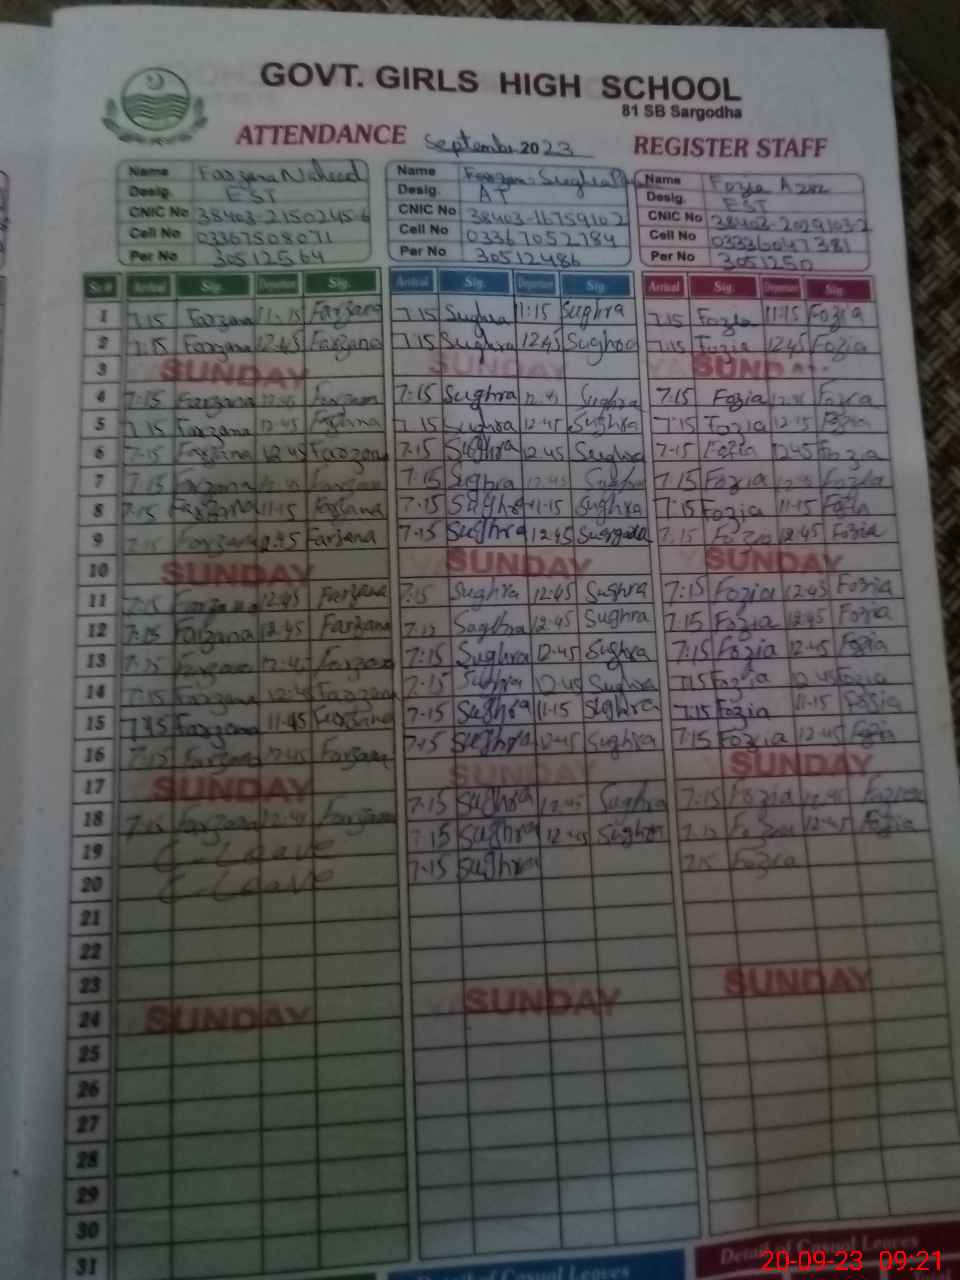 GOVT. GIRLS HIGH SCHOOL
81 SB Sargodha
ATTENDANCE September 2023 REGISTER STAFF
Name Farzana Naheed Name Sughra Name Fozia
Desig. EST Desig. AT Desig. EST
CNIC No 38403-2150245-6 CNIC No 38403-1675910 2 CNIC No 38403-2029103-2
Cell No 03367508071 Cell No 03367052784 Cell No 03336047381
Per No 30512564 Per No 30512486 Per No 3051250
Sr.# Arrival Sig. Departure Sig. Arrival Sig. Departure Sig. Arrival Sig. Departure Sig.
1 7.15 Farzana 11:15 Farzana 7.15 Sughra 11:15 Sughra 7.15 Fozia 11:15 Fozia
2 7:15 Farzana 12:45 Farzana 7.15 Sughra 12:45 Sughra 7:15 Fozia 12:45 Fozia
3 SUNDAY SUNDAY SUND
4 7:15 Farzana 12:45 Farzana 7:15 Sughra 12:45 Sughra 7:15 Fozia 12:45 Fozia
5 7.15 Farzana 12-45 Farzana 7.15 Sughra 12-45 Sughra 7:15 Fozia 12-45 Fozia
6 7-15 Farzana 12:45 Farzana 7-15 Sughra 12.45 Sughra 7-15 Fozia 12:45 Fozia
7 7.15 Farzana 12-45 Farzana 7:15 Sughra 12-45 Sughra 7.15 Fozia 12-45 Fozia
8 7:15 Farzana 11-15 Farzana 7:15 Sughra 11-15 Sughra 7:15 Fozia 11-15 Fozia
9 7:15 Farzana 12:45 Farzana 7-15 Sughra 12:45 7.15 Fozia 12:45 Fozia
10 SUNDAY SUNDAY SUNDAY
11 7:15 Farzana 12:45 Farzana 7:15 Sughra 12:45 Sughra 7:15 Fozia 12:45 Fozia
12 7:15 Farzana 12:45 Farzana 7.15 Sughra 12.45 Sughra 7.15 Fozia 12:45 Fozia
13 7:15 Farzana 12:45 Farzana 7:15 Sughra 12-45 Sughra 7:15 Fozia 12-45 Fozia
14 7:15 Farzana 12:45 Farzana 7:15 Sughra 12:45 Sughra 7:15 Fozia 12:45 Fozia
15 7:15 Farzana 11-45 Farzana 7-15 Sughra 11-15 Sughra 7:15 Fozia 11-15 Fozia
16 7:15 Farzana 12:45 Farzana 7:15 Sughra 12-45 Sughra 7:15 Fozia 12-45 Fozia
17 SUNDAY SUNDAY SUNDAY
18 7:15 Farzana 12:45 Farzana 7:15 Sughra 12:45 Sughra 7:15 Fozia 12:45 Fozia
19 C-Leave 7:15 Sughra 12-45 Sughra 7.15 Fozia 12-45 Fozia
20 C-Leave 7-15 Sughra 7:15 Fozia
21
22
23
24 SUNDAY SUNDAY SUNDAY
25
26
27
28
29
30
31
Detail of Casual Leaves Detail of Casual Leaves
20-09-23 09:21